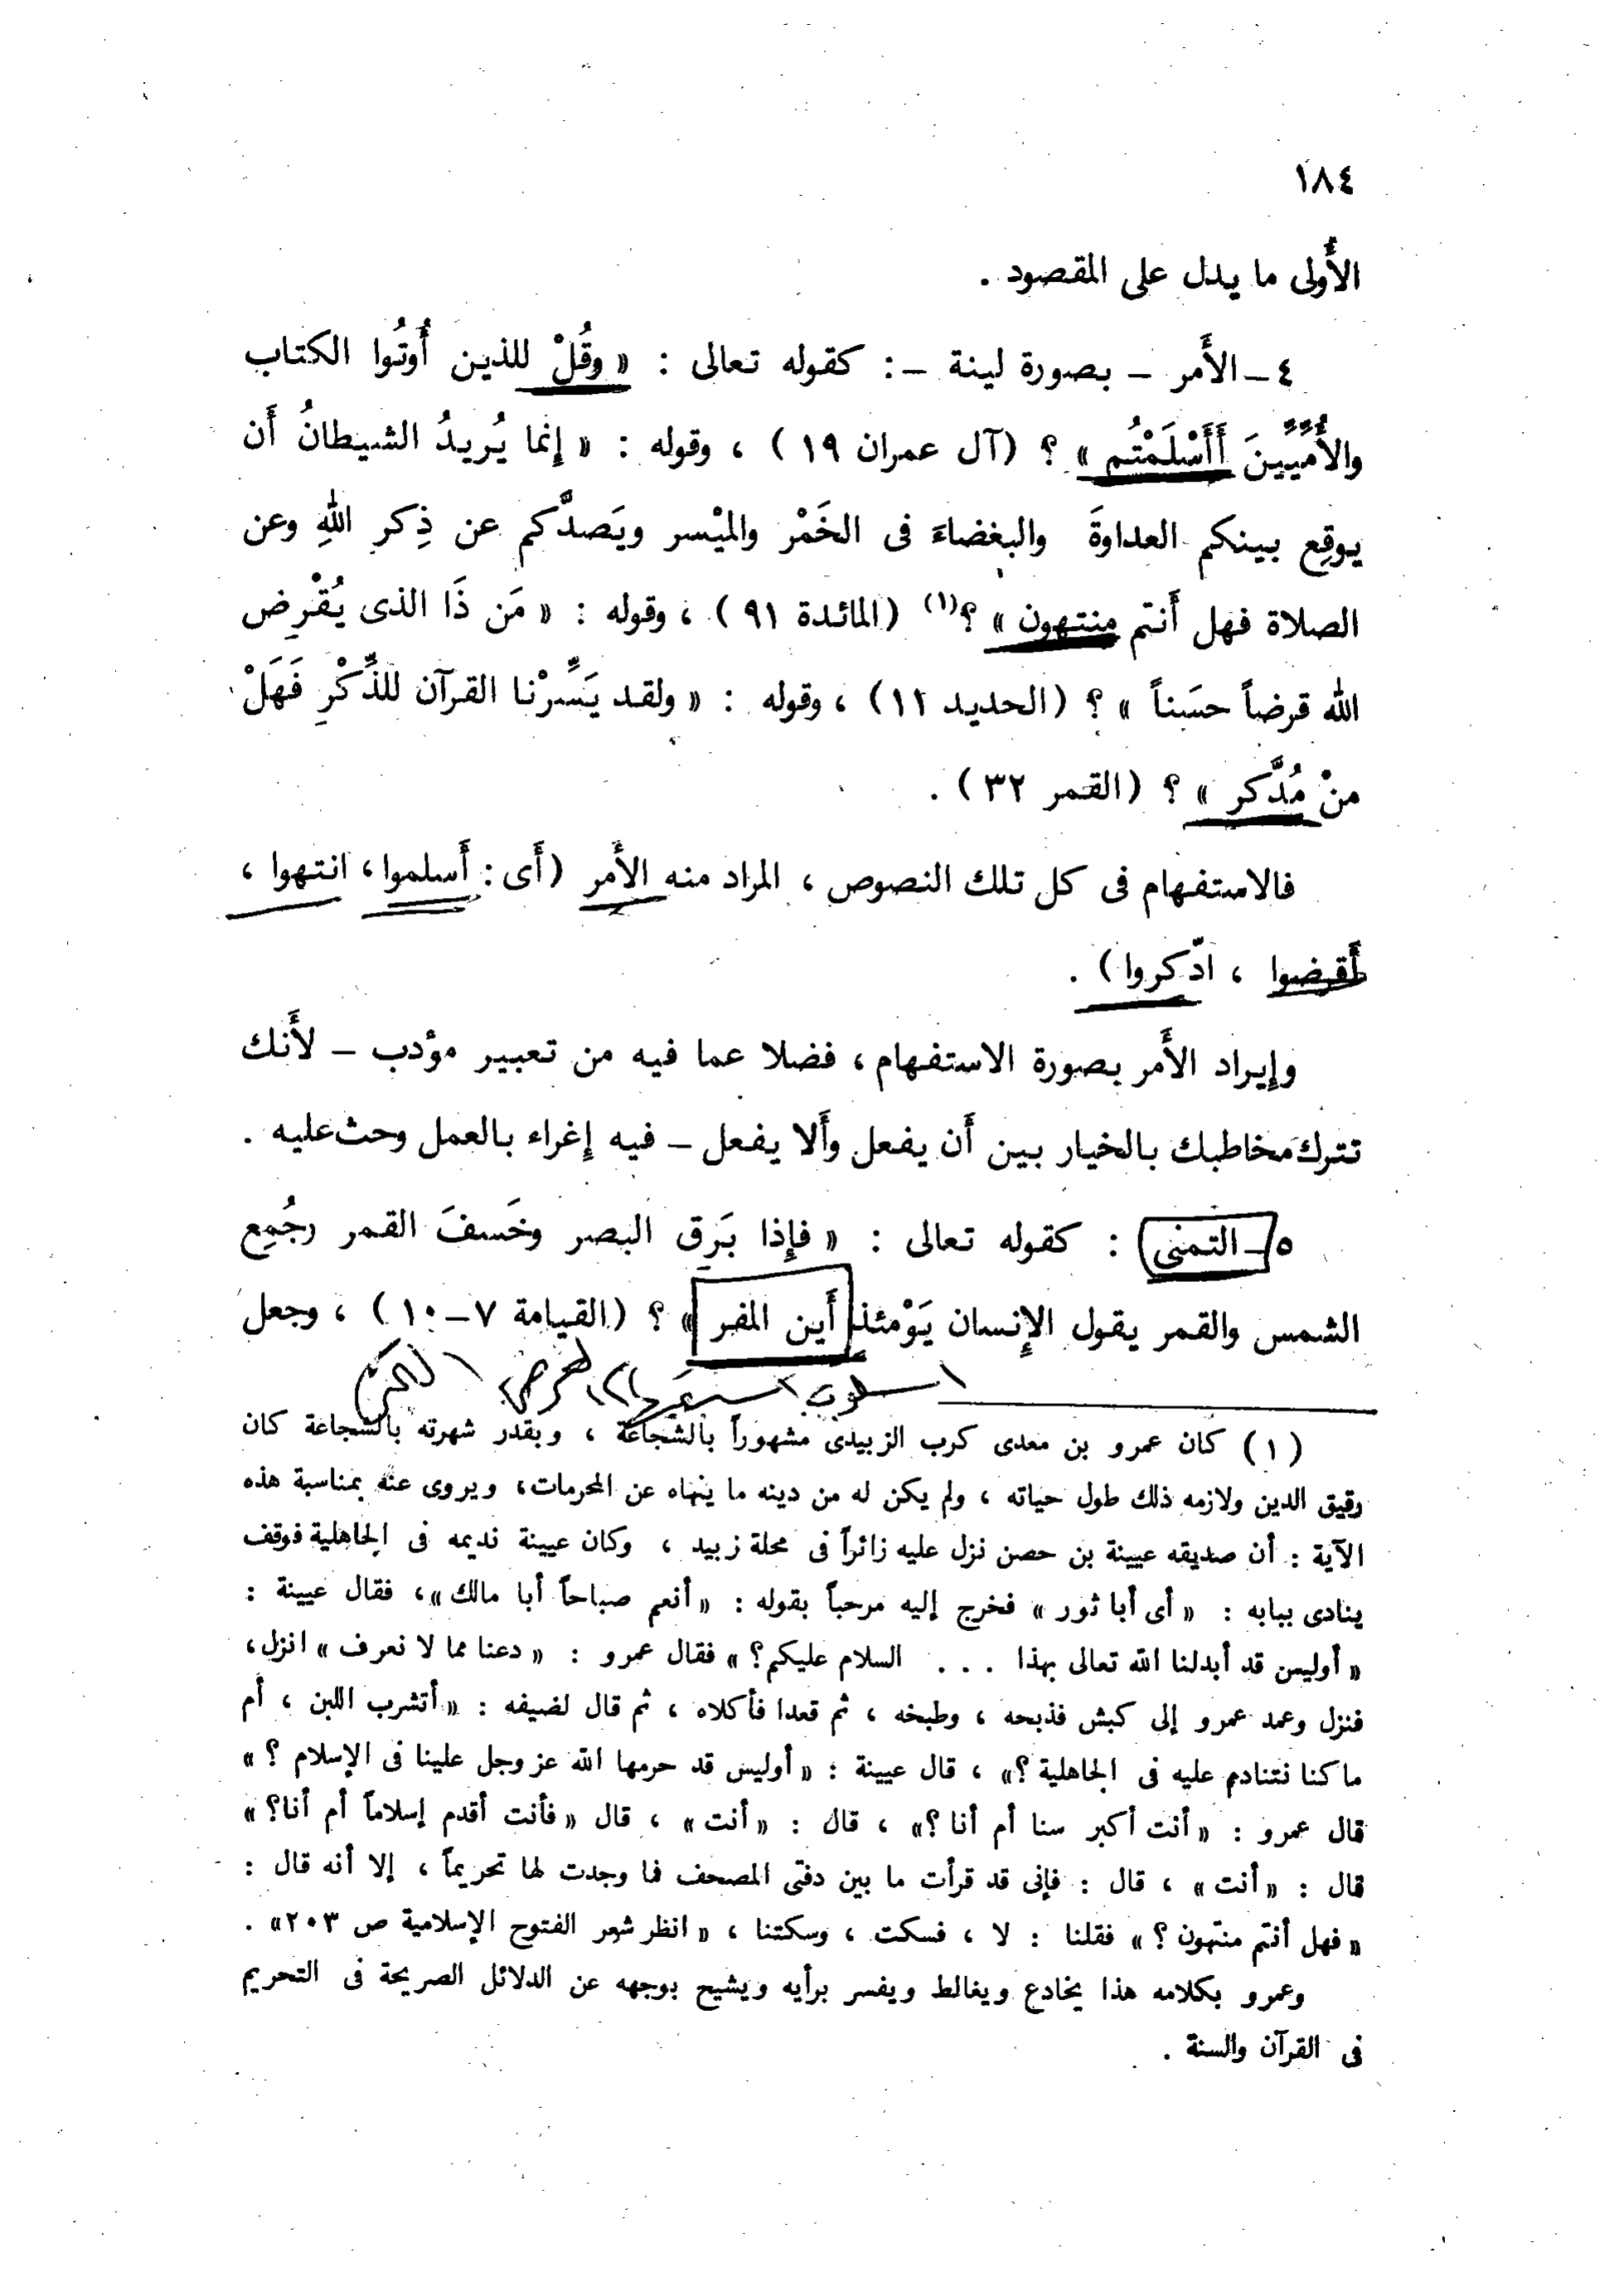 ١٨٤
الأُولى ما يدل على المقصود .
٤ – الأَمر – بصورة لينة – : كقوله تعالى : « وقُلْ للذين أُوتُوا الكتاب
والأُمِّيِّينَ أَأَسْلَمْتُم » ؟ (آل عمران ١٩) ، وقوله : « إِنما يُريدُ الشيطانُ أَن
يوقِع بينكم العداوةَ والبغضاءَ فى الخَمْر والميْسر ويَصدَّكم عن ذِكر اللهِ وعن
الصلاة فهل أَنتم منتهون » ؟(١) (المائدة ٩١) ، وقوله : « مَن ذَا الذى يُقْرِض
الله قرضاً حسَناً » ؟ (الحديد ١١) ، وقوله : « ولقد يَسَّرْنا القرآن للذِّكْرِ فَهَلْ
منْ مُدَّكر » ؟ (القمر ٣٢) .
فالاستفهام فى كل تلك النصوص ، المراد منه الأَمر (أَى : أَسلموا ، انتهوا ،
أَقرضوا ، ادّكروا) .
وإِيراد الأَمر بصورة الاستفهام ، فضلا عما فيه من تعبير مؤدب – لأَنك
تترك مخاطبك بالخيار بين أَن يفعل وأَلا يفعل – فيه إِغراء بالعمل وحث عليه .
٥ – التمنى : كقوله تعالى : « فإِذا بَرِق البصر وخَسفَ القمر وجُمِع
الشمس والقمر يقول الإِنسان يَوْمئذ أَين المفر » ؟ (القيامة ٧–١٠) ، وجعل
(١) كان عمرو بن معدى كرب الزبيدى مشهوراً بالشجاعة ، وبقدر شهرته بالشجاعة كان
رقيق الدين ولازمه ذلك طول حياته ، ولم يكن له من دينه ما ينهاه عن المحرمات ، ويروى عنه بمناسبة هذه
الآية : أن صديقه عيينة بن حصن نزل عليه زائراً فى محلة زبيد ، وكان عيينة نديمه فى الجاهلية فوقف
ينادى ببابه : « أى أبا ثور » فخرج إليه مرحباً بقوله : « أنعم صباحاً أبا مالك » ، فقال عيينة :
« أوليس قد أبدلنا الله تعالى بهذا . . . السلام عليكم ؟ » فقال عمرو : « دعنا مما لا نعرف » انزل ،
فنزل وعمد عمرو إلى كبش فذبحه ، وطبخه ، ثم قعدا فأكلاه ، ثم قال لضيفه : « أتشرب اللبن ، أم
ما كنا نتنادم عليه فى الجاهلية ؟ » ، قال عيينة : « أوليس قد حرمها الله عز وجل علينا فى الإسلام ؟ »
قال عمرو : « أنت أكبر سنا أم أنا ؟ » ، قال : « أنت » ، قال « فأنت أقدم إسلاماً أم أنا ؟ »
قال : « أنت » ، قال : فإنى قد قرأت ما بين دفتى المصحف فما وجدت لها تحريماً ، إلا أنه قال :
« فهل أنتم منتهون ؟ » فقلنا : لا ، فسكت ، وسكتنا ، « انظر شعر الفتوح الإسلامية ص ٢٠٣ » .
وعمرو بكلامه هذا يخادع ويغالط ويفسر برأيه ويشيح بوجهه عن الدلائل الصريحة فى التحريم
فى القرآن والسنة .